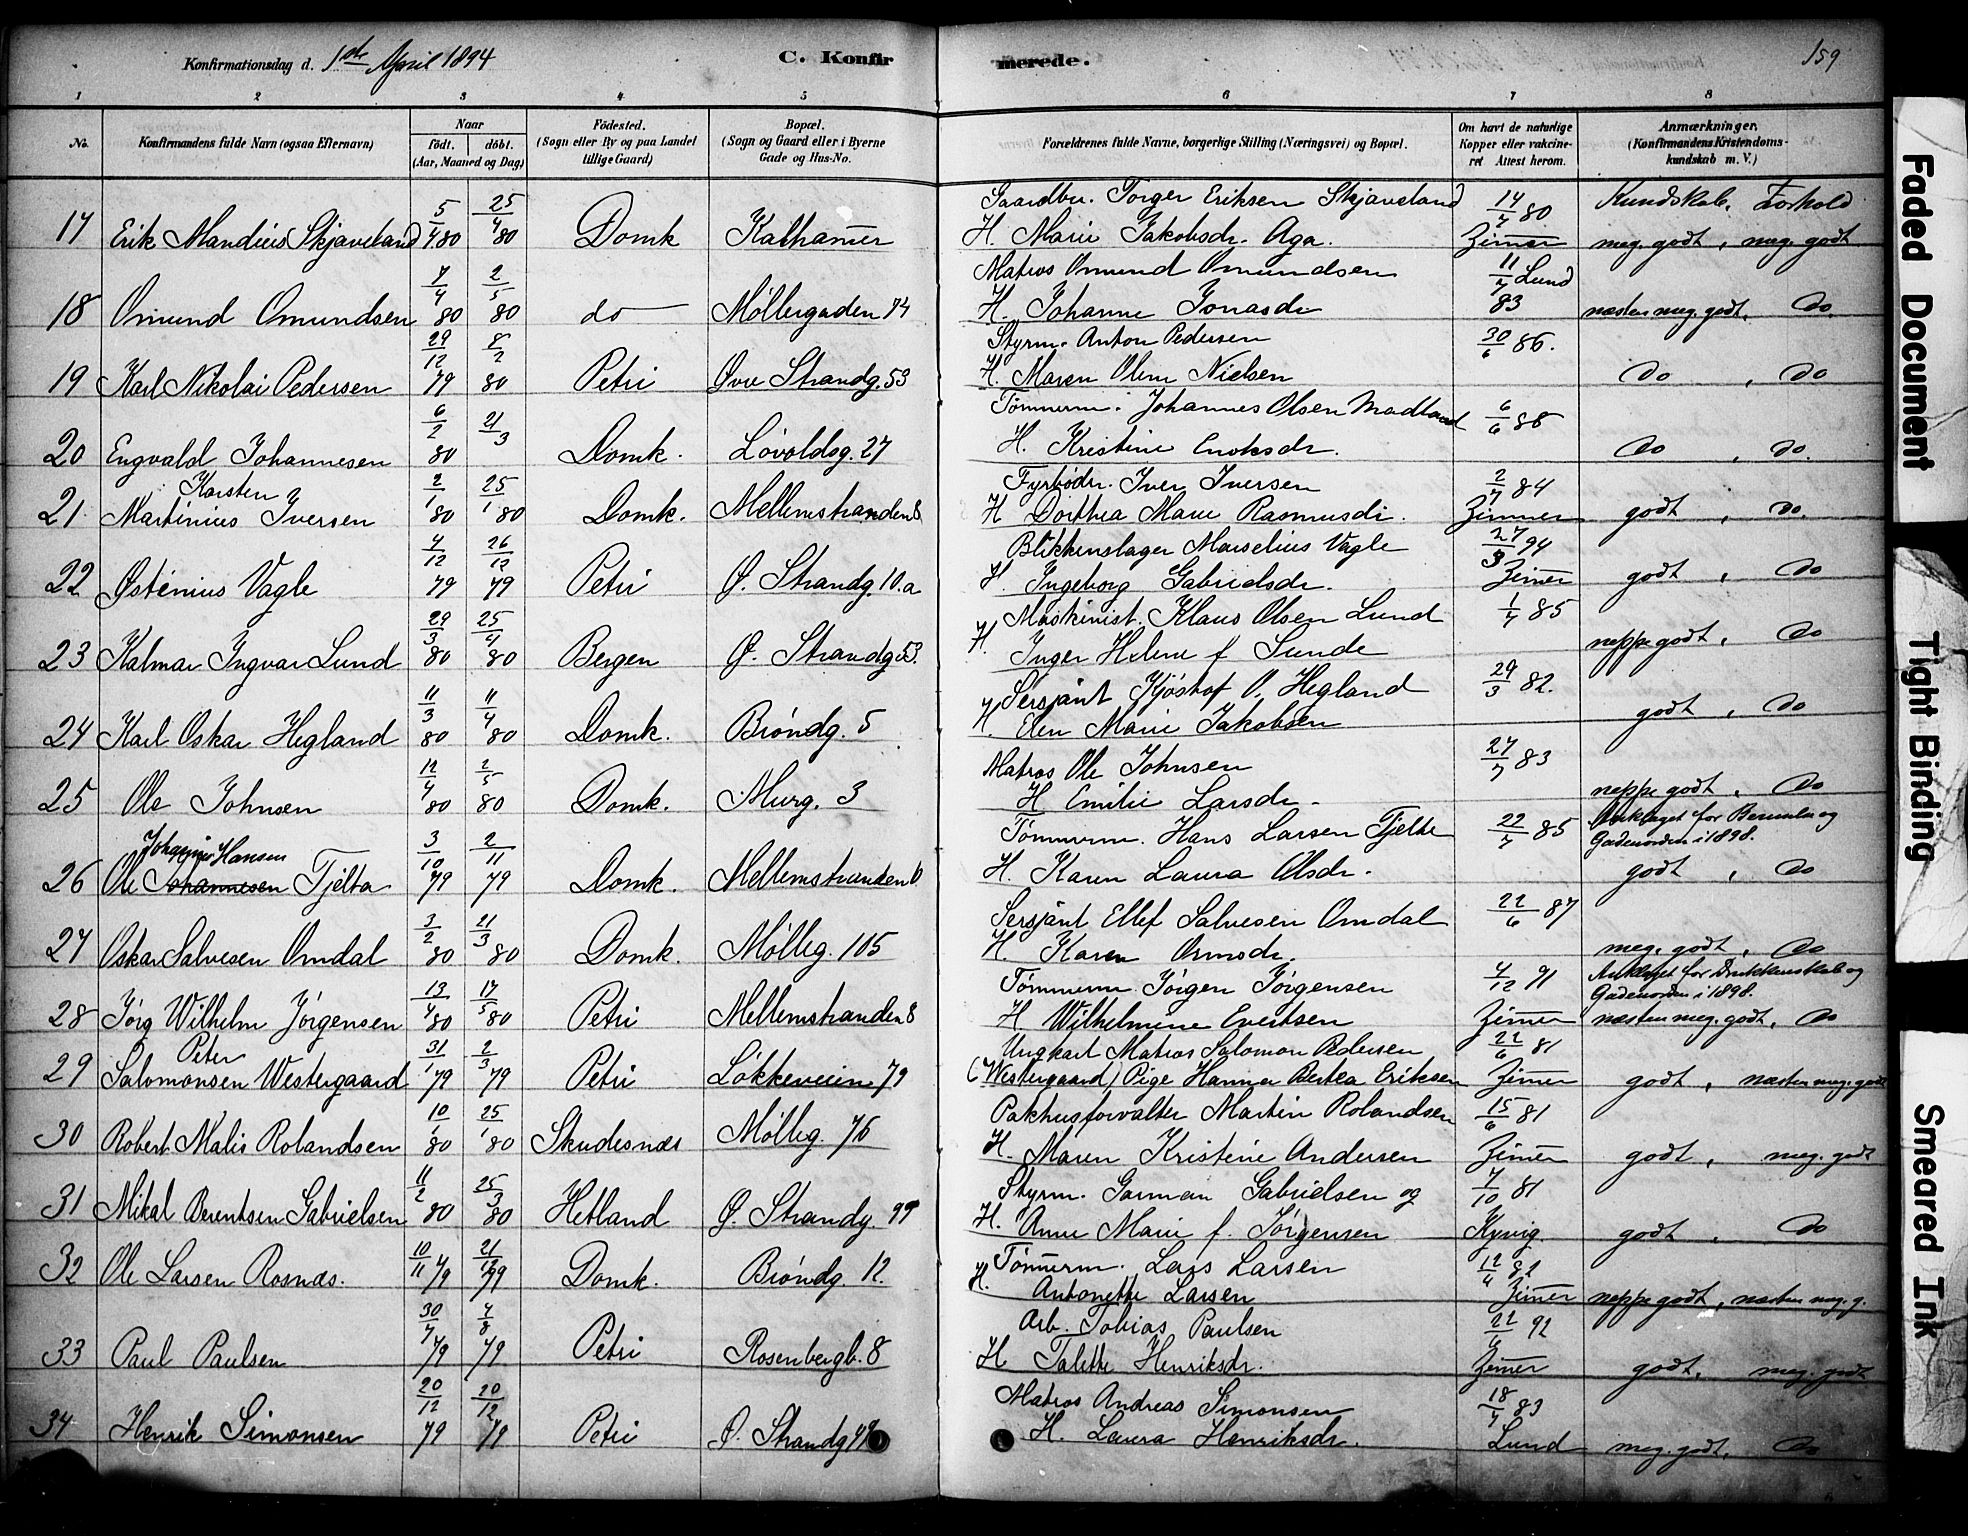 Konfirmationsdag d. 1ste April 1894
C. Konfirmerede.
159
1 2 3 4 5 6 7 8
No.
Konfirmandens fulde Navn (ogsaa Efternavn)
Naar
født. døbt.
(Aar, Maaned og Dag)
Fødested.
(Sogn eller By og paa Landet
tillige Gaard)
Bopæl.
(Sogn og Gaard eller i Byerne
Gade og Hus-No.
Forældrenes fulde Navne, borgerlige Stilling (Næringsvei) og Bopæl.
Om havt de naturlige
Kopper eller vakcine-
ret Attest herom.
Anmærkninger.
(Konfirmandens Kristendoms-
kundskab m. V.)
Gaardbr. Torger Eriksen Skjæveland 14/7 80 Kundskab. Forhold
17 Erik Mandius Skjæveland 5/4 80 25/4 80 Domk Kalhammer H. Marie Jakobsdr. Aga. Zimer meg. godt, meg. godt
Matros Omund Omundsen 11/7 Lund
18 Omund Omundsen 7/4 80 2/5 80 do Møllergaden 74 H. Johanne Jonasdr 83 næsten meg. godt, do
Styrm. Anton Pedersen 30/6 86.
19 Karl Nikolai Pedersen 29/12 79 8/2 80 Petri Øvre Strandg. 53 H. Maren Olene Nielsen do, do
Tømmerm. Johannes Olsen Madland 6/6 86
20 Engvald Johannesen 6/2 80 21/3 Domk. Løvoldsg. 27 H. Kristine Enoksdr. do, do.
Karsten Fyrbødr. Iver Iversen 2/7 84
21 Martinius Iversen 2/1 80 25/1 80 Domk. Mellemstranden 8 H Dorthea Marie Rasmusdr. Zimmer godt, do.
Blikkenslager Marselius Vagle 27/3 94
22 Østenius Vagle 4/12 79 26/12 79 Petri Ø. Strandg. 10.a H. Ingeborg Gabrielsdr. Zimer godt, do
Maskinist. Klaus Olsen Lund 1/7 85
23 Kalmar Ingvar Lund 29/3 80 25/4 80 Bergen Ø. Strandg 53. H. Inger Helene f Sunde neppe godt, do
Sersjant Kjøstof O. Hegland 29/3 82.
24 Karl Oskar Hegland 11/3 80 11/4 80 Domk. Brøndg. 5 H. Elen Marie Jakobsen godt, do
Matros Ole Johnsen 27/7 83
25 Ole Johnsen 12/4 80 2/5 80 Domk. Murg. 3 H Emilie Larsdr. neppe godt, do
Johannes Hansen Tømmerm. Hans Larsen Tjelta 22/7 85 Anklaget for Beruselse og
Gadeuorden i 1898.
26 Ole Johannesen Tjelta 3/10 79 2/11 79 Domk. Mellemstranden 6 H. Karen Laura Olsdr. godt, do
Sersjant Ellef Salvesen Omdal 22/6 87
27 Oskar Salvesen Omdal 3/2 80 21/3 80 Domk. Mølleg. 105 H. Karen Ormsdr. meg. godt, do
Tømmerm. Jørgen Jørgensen 4/12 91 Anklaget for Drukkenskab og
Gadeuorden i 1898.
28 Jørg Wilhelm Jørgensen 13/4 80 17/5 80 Petri Mellemstranden 8 H Wilhelmine Evertsen Zimer næsten meg. godt, do
Peter Ungkarl Matros Salomon Pedersen 22/6 81
29 Salomonsen Westergaard 31/1 79 2/3 79 Petri Løkkeveien 79 (Westergaard) Pige Hanna Bertea Eriksen Zimer godt, næsten meg. godt
Pakhusforvalter Martin Rolandsen 15/6 81
30 Robert Malis Rolandsen 10/1 80 25/1 80 Skudesnæs Mølleg. 76 H. Maren Kristine Andersen Zimer godt, meg. godt
Styrm. Gorman Gabrielsen og 7/10 81
31 Mikal Berentsen Gabrielsen 11/2 80 25/3 80 Hetland Ø. Strandg. 99 H. Anne Marie f. Jørgensen Kyvig. godt, do
Tømmerm. Lars Larsen 12/4 82
32 Ole Larsen Rosnæs. 10/11 79 21/12 79 Domk. Brøndg. 12. H. Antonette Larsen Zimer neppe godt, næsten meg. g.
Arb. Tobias Paulsen 22/6 92
33 Paul Paulsen 30/7 79 7/8 79 Petri Rosenbergb. 8 H Talette Henriksdr. Zimer godt, meg. godt
Matros Andreas Simonsen 18/7 83
34 Henrik Simonsen 20/12 79 20/12 79 Petri Ø. Strandg 49 H. Laura Henriksdr. Lund meg. godt, do
Faded Document
Tight Binding
Smeared Ink